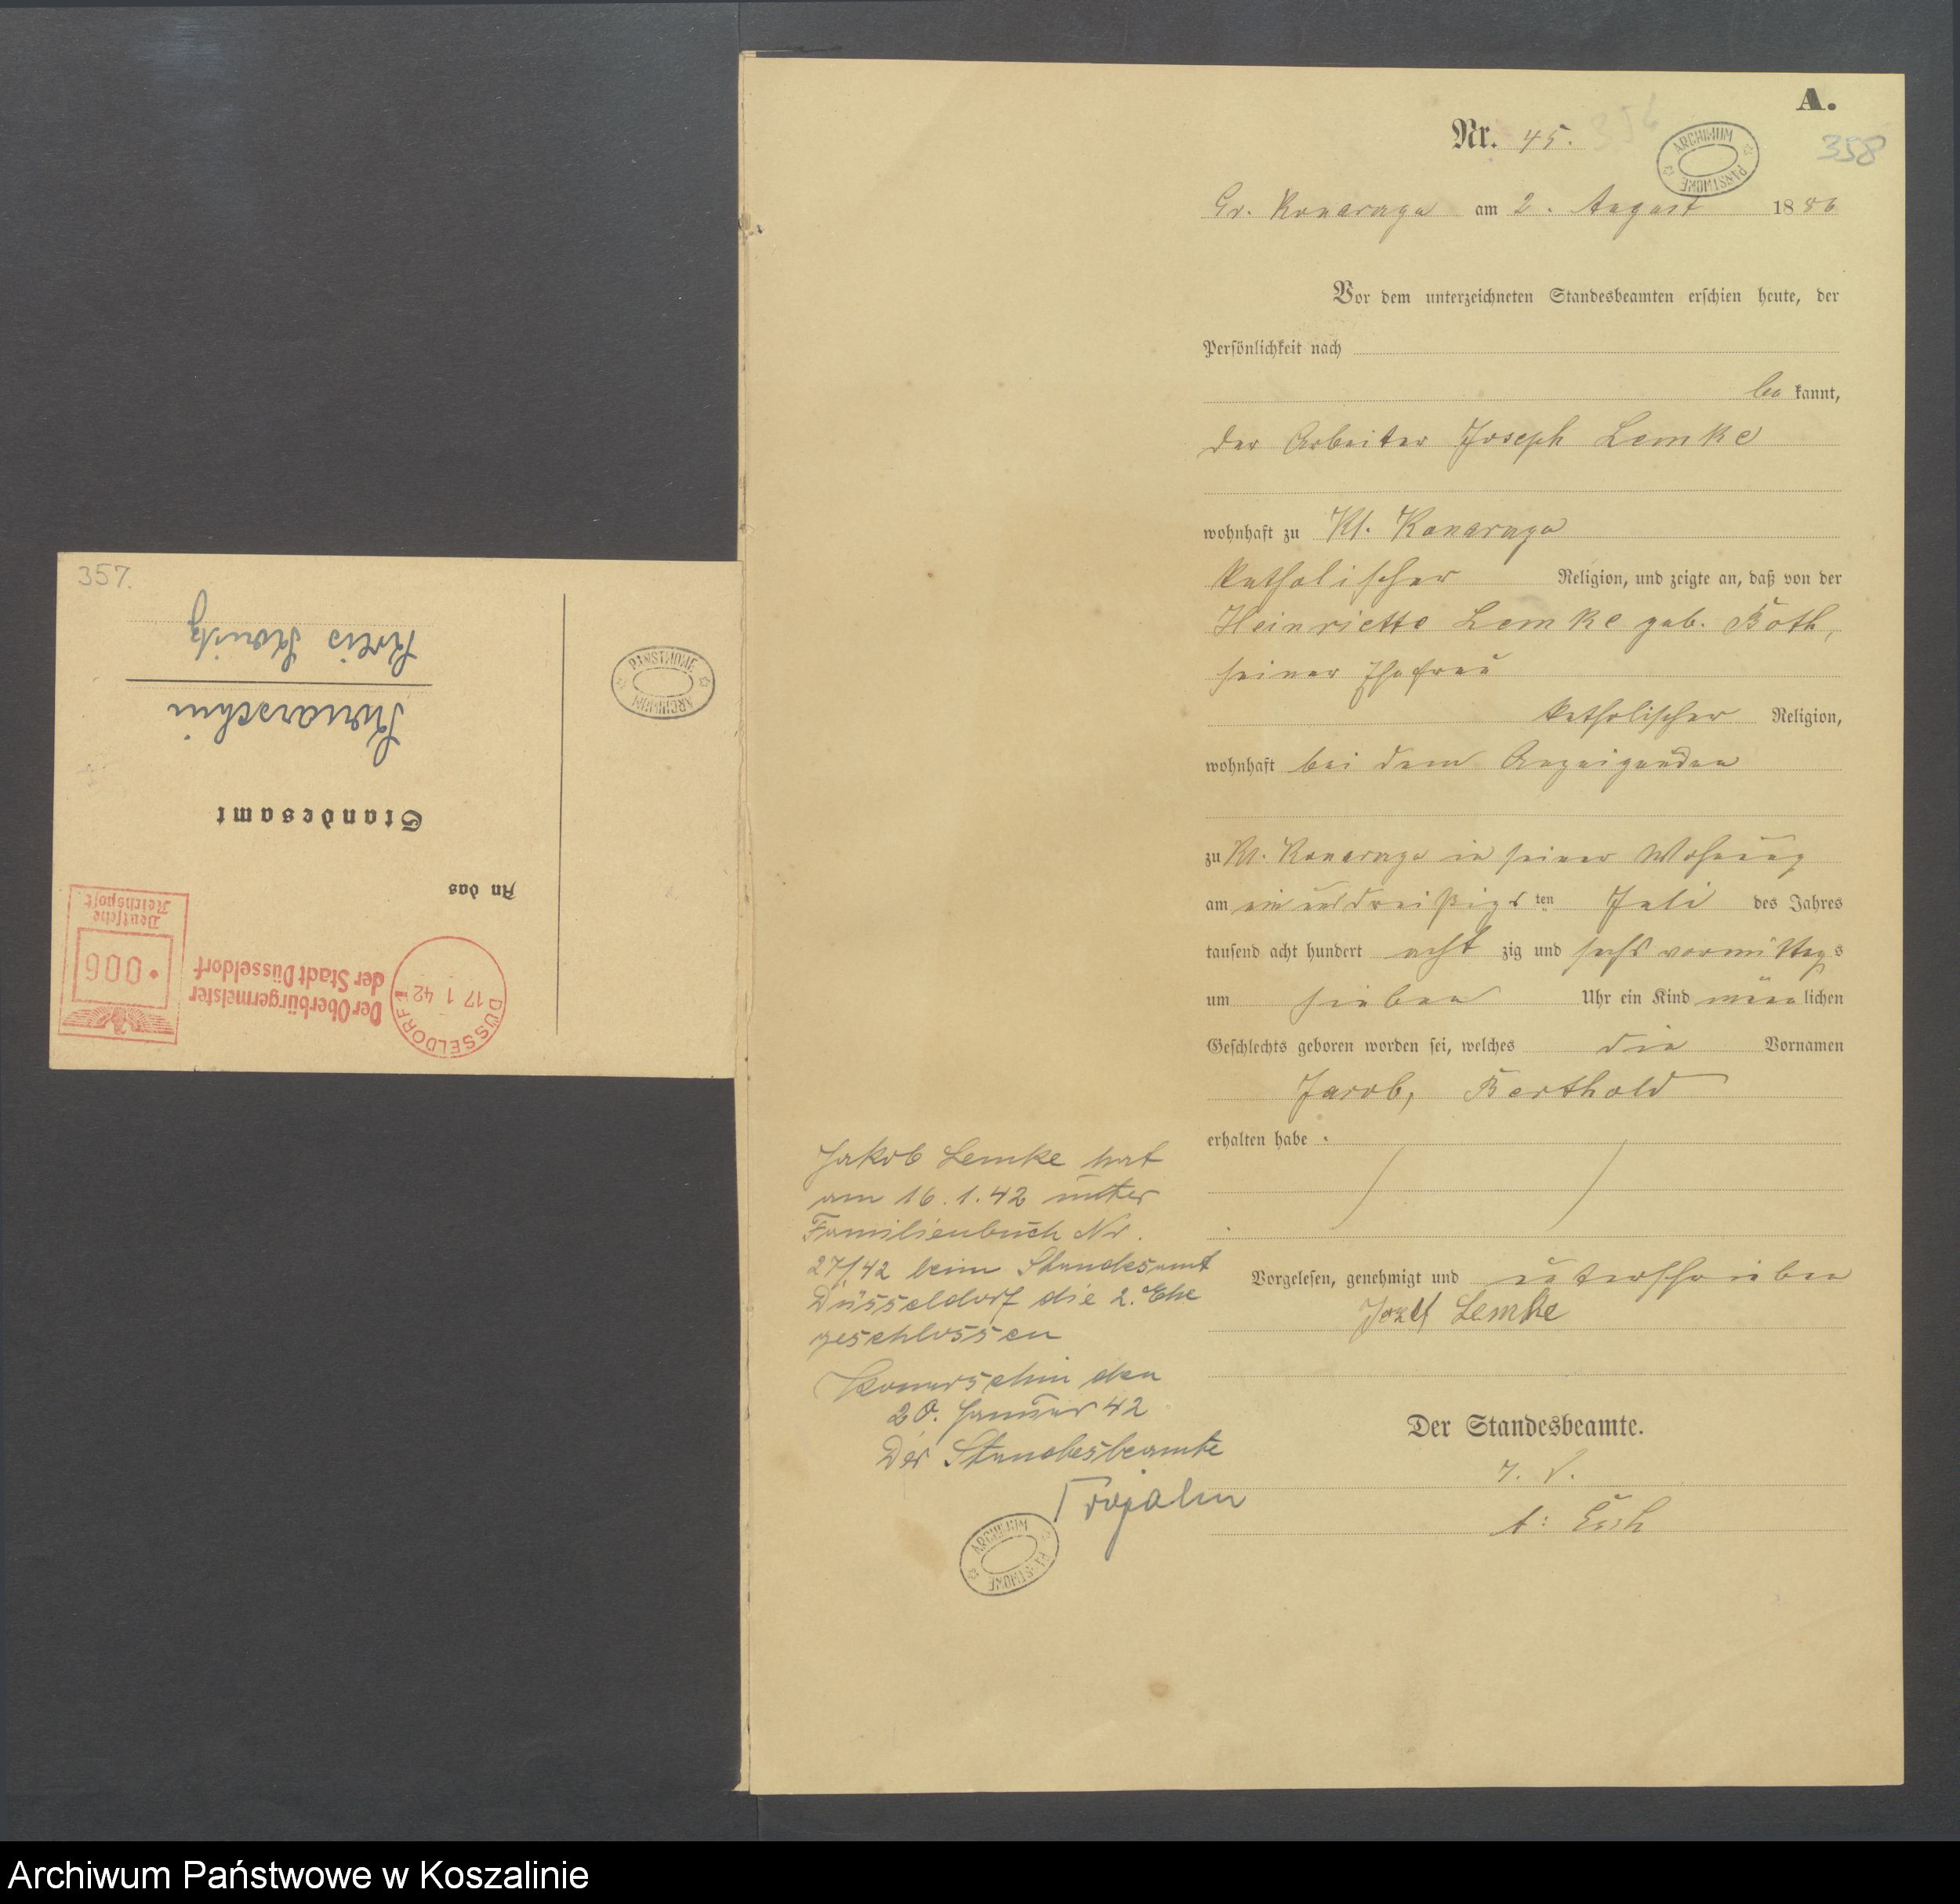 357.
An das
Standesamt
Konarschin
Kreis Konitz
Der Oberbürgermeister
der Stadt Düsseldorf
DÜSSELDORF 1
17 1 42
006
Deutsche
Reichspost
ARCHIWUM PAŃSTWOWE
A.
Nr. 45.
358
ARCHIWUM PAŃSTWOWE
Gr. Konarczyn am 2. August 1886
Vor dem unterzeichneten Standesbeamten erschien heute, der
Persönlichkeit nach
be kannt,
der Arbeiter Joseph Lemke
wohnhaft zu Kl. Konarczyn
katholischer Religion, und zeigte an, daß von der
Heinriette Lemke geb. Both,
seiner Ehefrau
katholischer Religion,
wohnhaft bei dem Anzeigenden
zu Kl. Konarczyn in seiner Wohnung
am einunddreißigsten Juli des Jahres
tausend acht hundert acht zig und sechs vormittags
um sieben Uhr ein Kind männlichen
Geschlechts geboren worden sei, welches die Vornamen
Jacob, Berthold
erhalten habe.
Vorgelesen, genehmigt und unterschrieben
Jozef Lemke
Der Standesbeamte.
Jakob Lemke hat
am 16.1.42 unter
Familienbuch Nr.
27/42 beim Standesamt
Düsseldorf die 2. Ehe
geschlossen
Konarschin den
20. Januar 42
Der Standesbeamte
ARCHIWUM PAŃSTWOWE
Archiwum Państwowe w Koszalinie